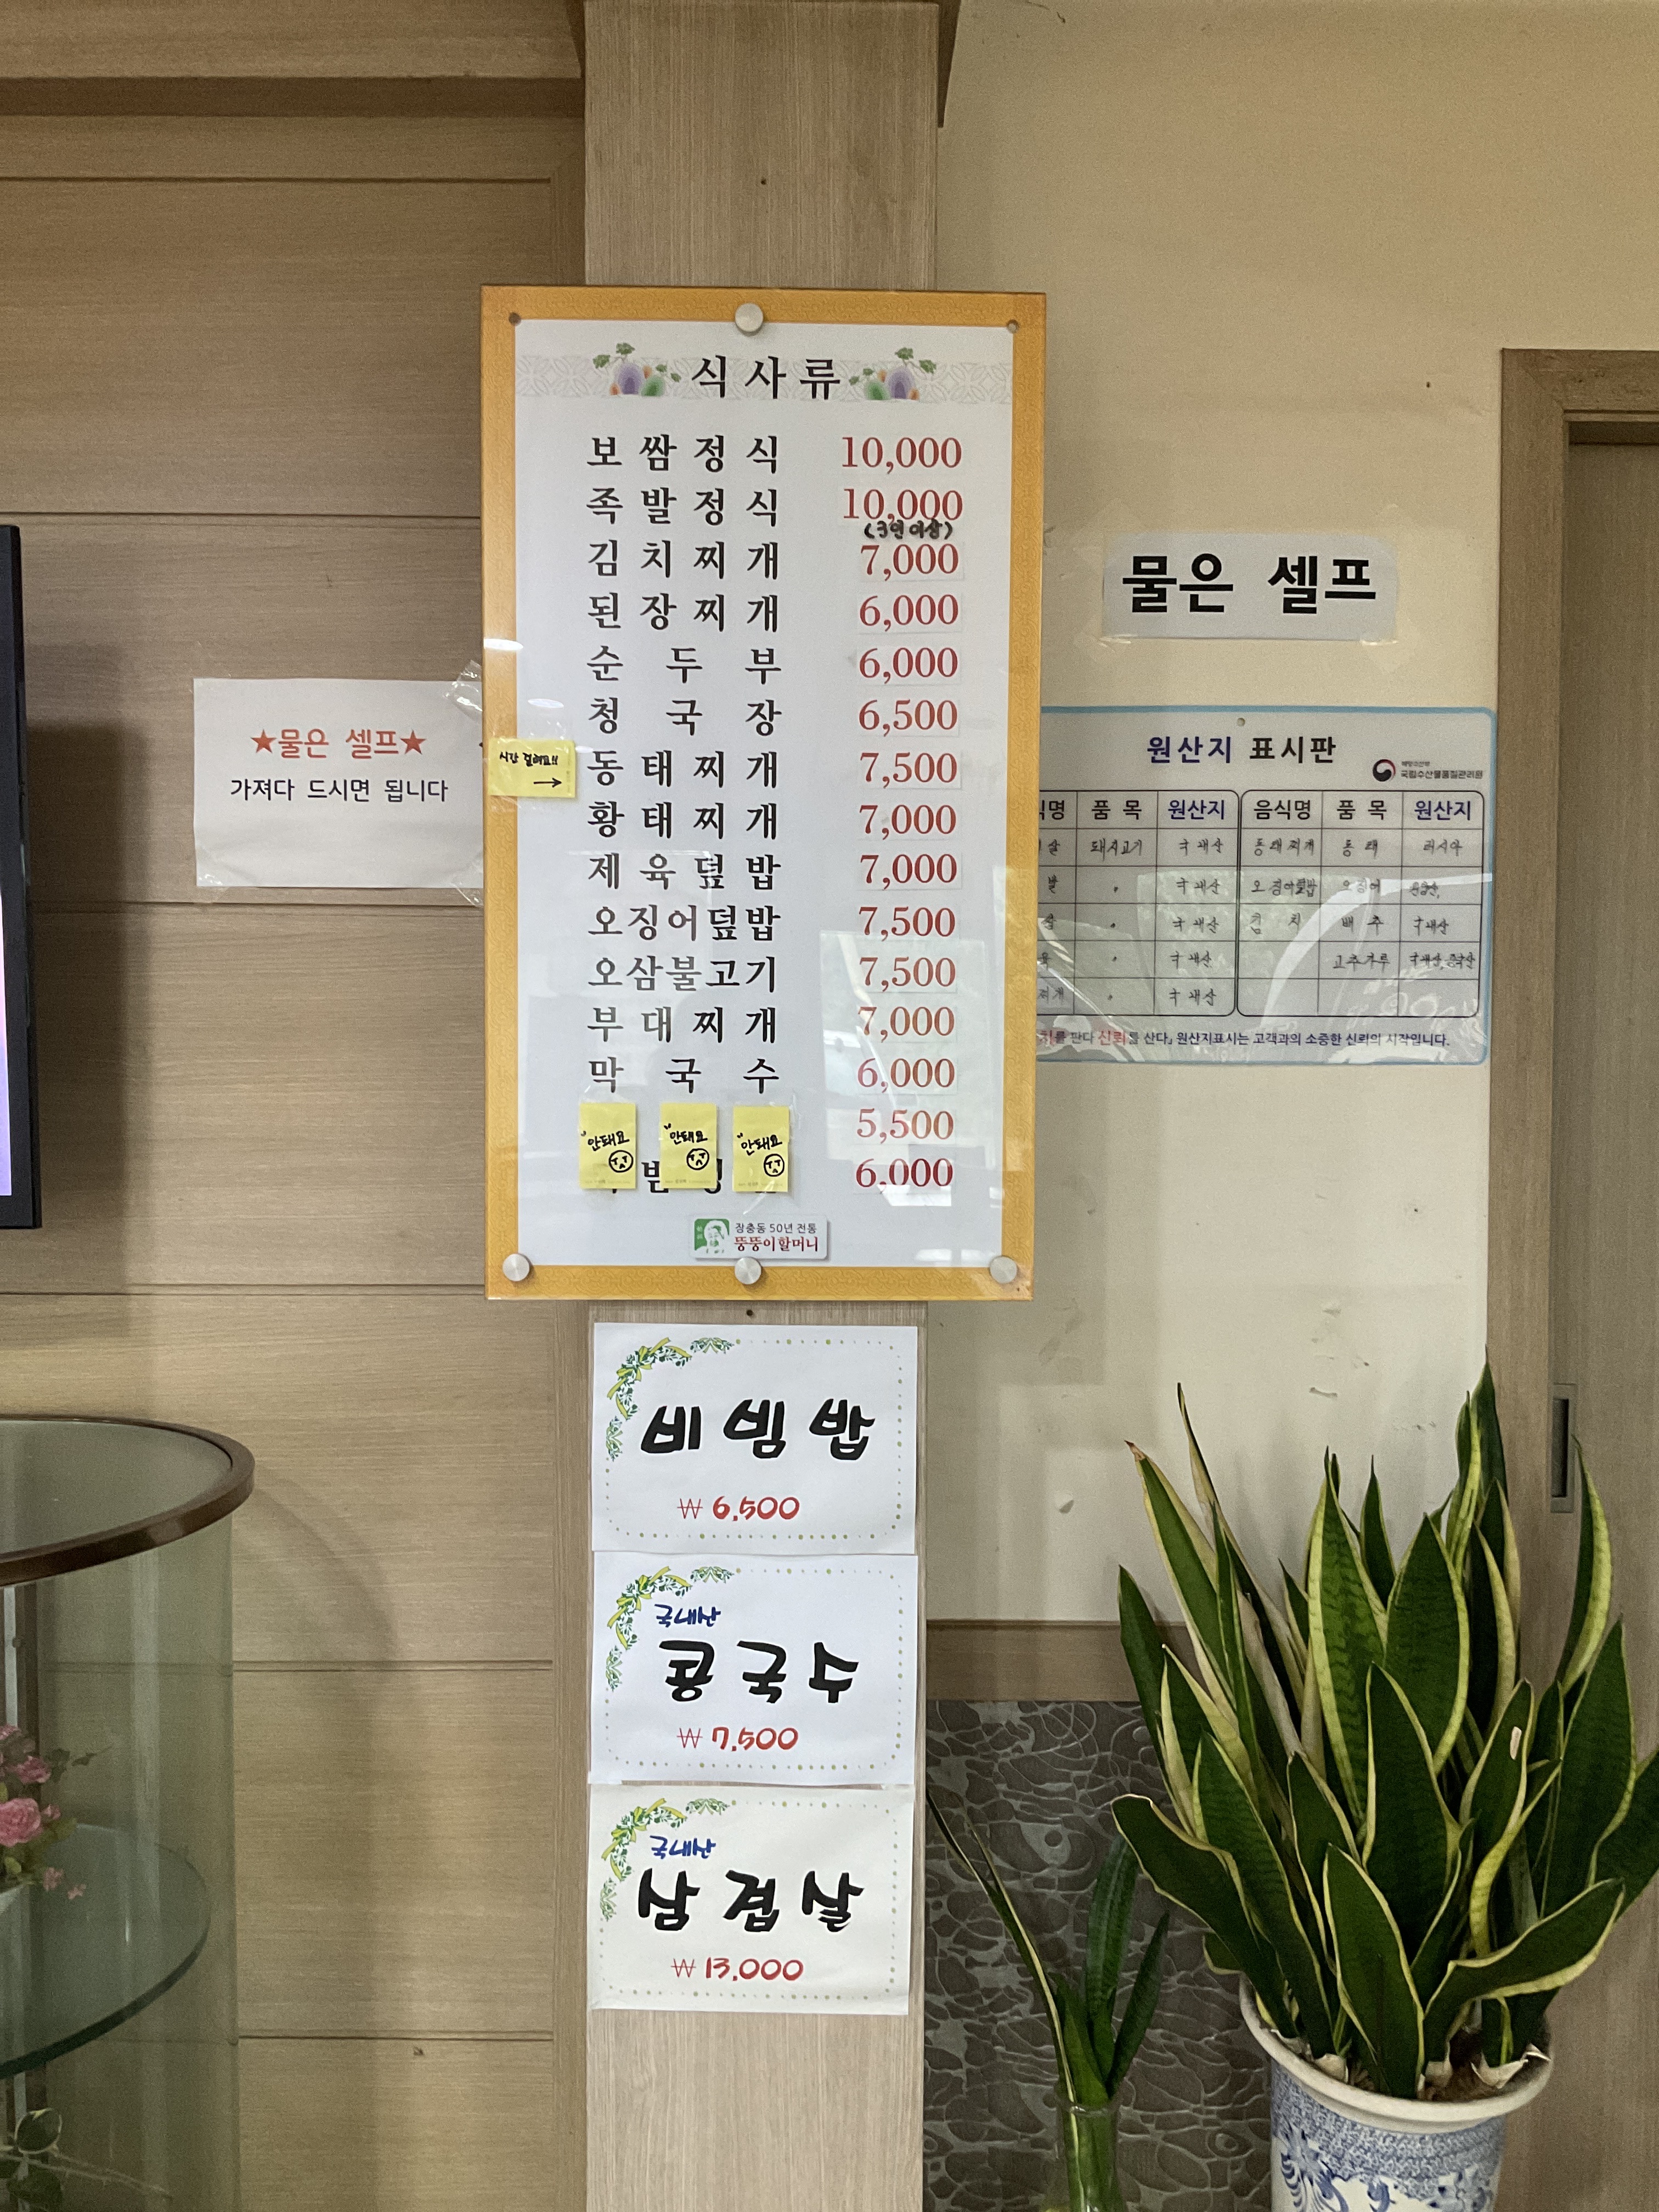 식사류
보쌈정식 10,000
족발정식 10,000
(3인 이상)
김치찌개 7,000
된장찌개 6,000
순두부 6,000
청국장 6,500
시간 걸려요!!
→
동태찌개 7,500
황태찌개 7,000
제육덮밥 7,000
오징어덮밥 7,500
오삼불고기 7,500
부대찌개 7,000
막국수 6,000
5,500
6,000
안돼요
안돼요
안돼요
장충동 50년 전통
뚱뚱이할머니
비빔밥
₩ 6,500
국내산
콩국수
₩ 7,500
국내산
삼겹살
₩ 13,000
★물은 셀프★
가져다 드시면 됩니다
물은 셀프
원산지 표시판
국립수산물품질관리원
식명 품목 원산지 음식명 품목 원산지
살 돼지고기 국내산 동태찌개 동태 러시아
발 〃 국내산 오징어덮밥 오징어
〃 국내산 김치 배추 국내산
〃 국내산 고추가루 국내산, 중국산
찌개 〃 국내산
를 판다 신뢰를 산다」 원산지표시는 고객과의 소중한 신뢰의 시작입니다.